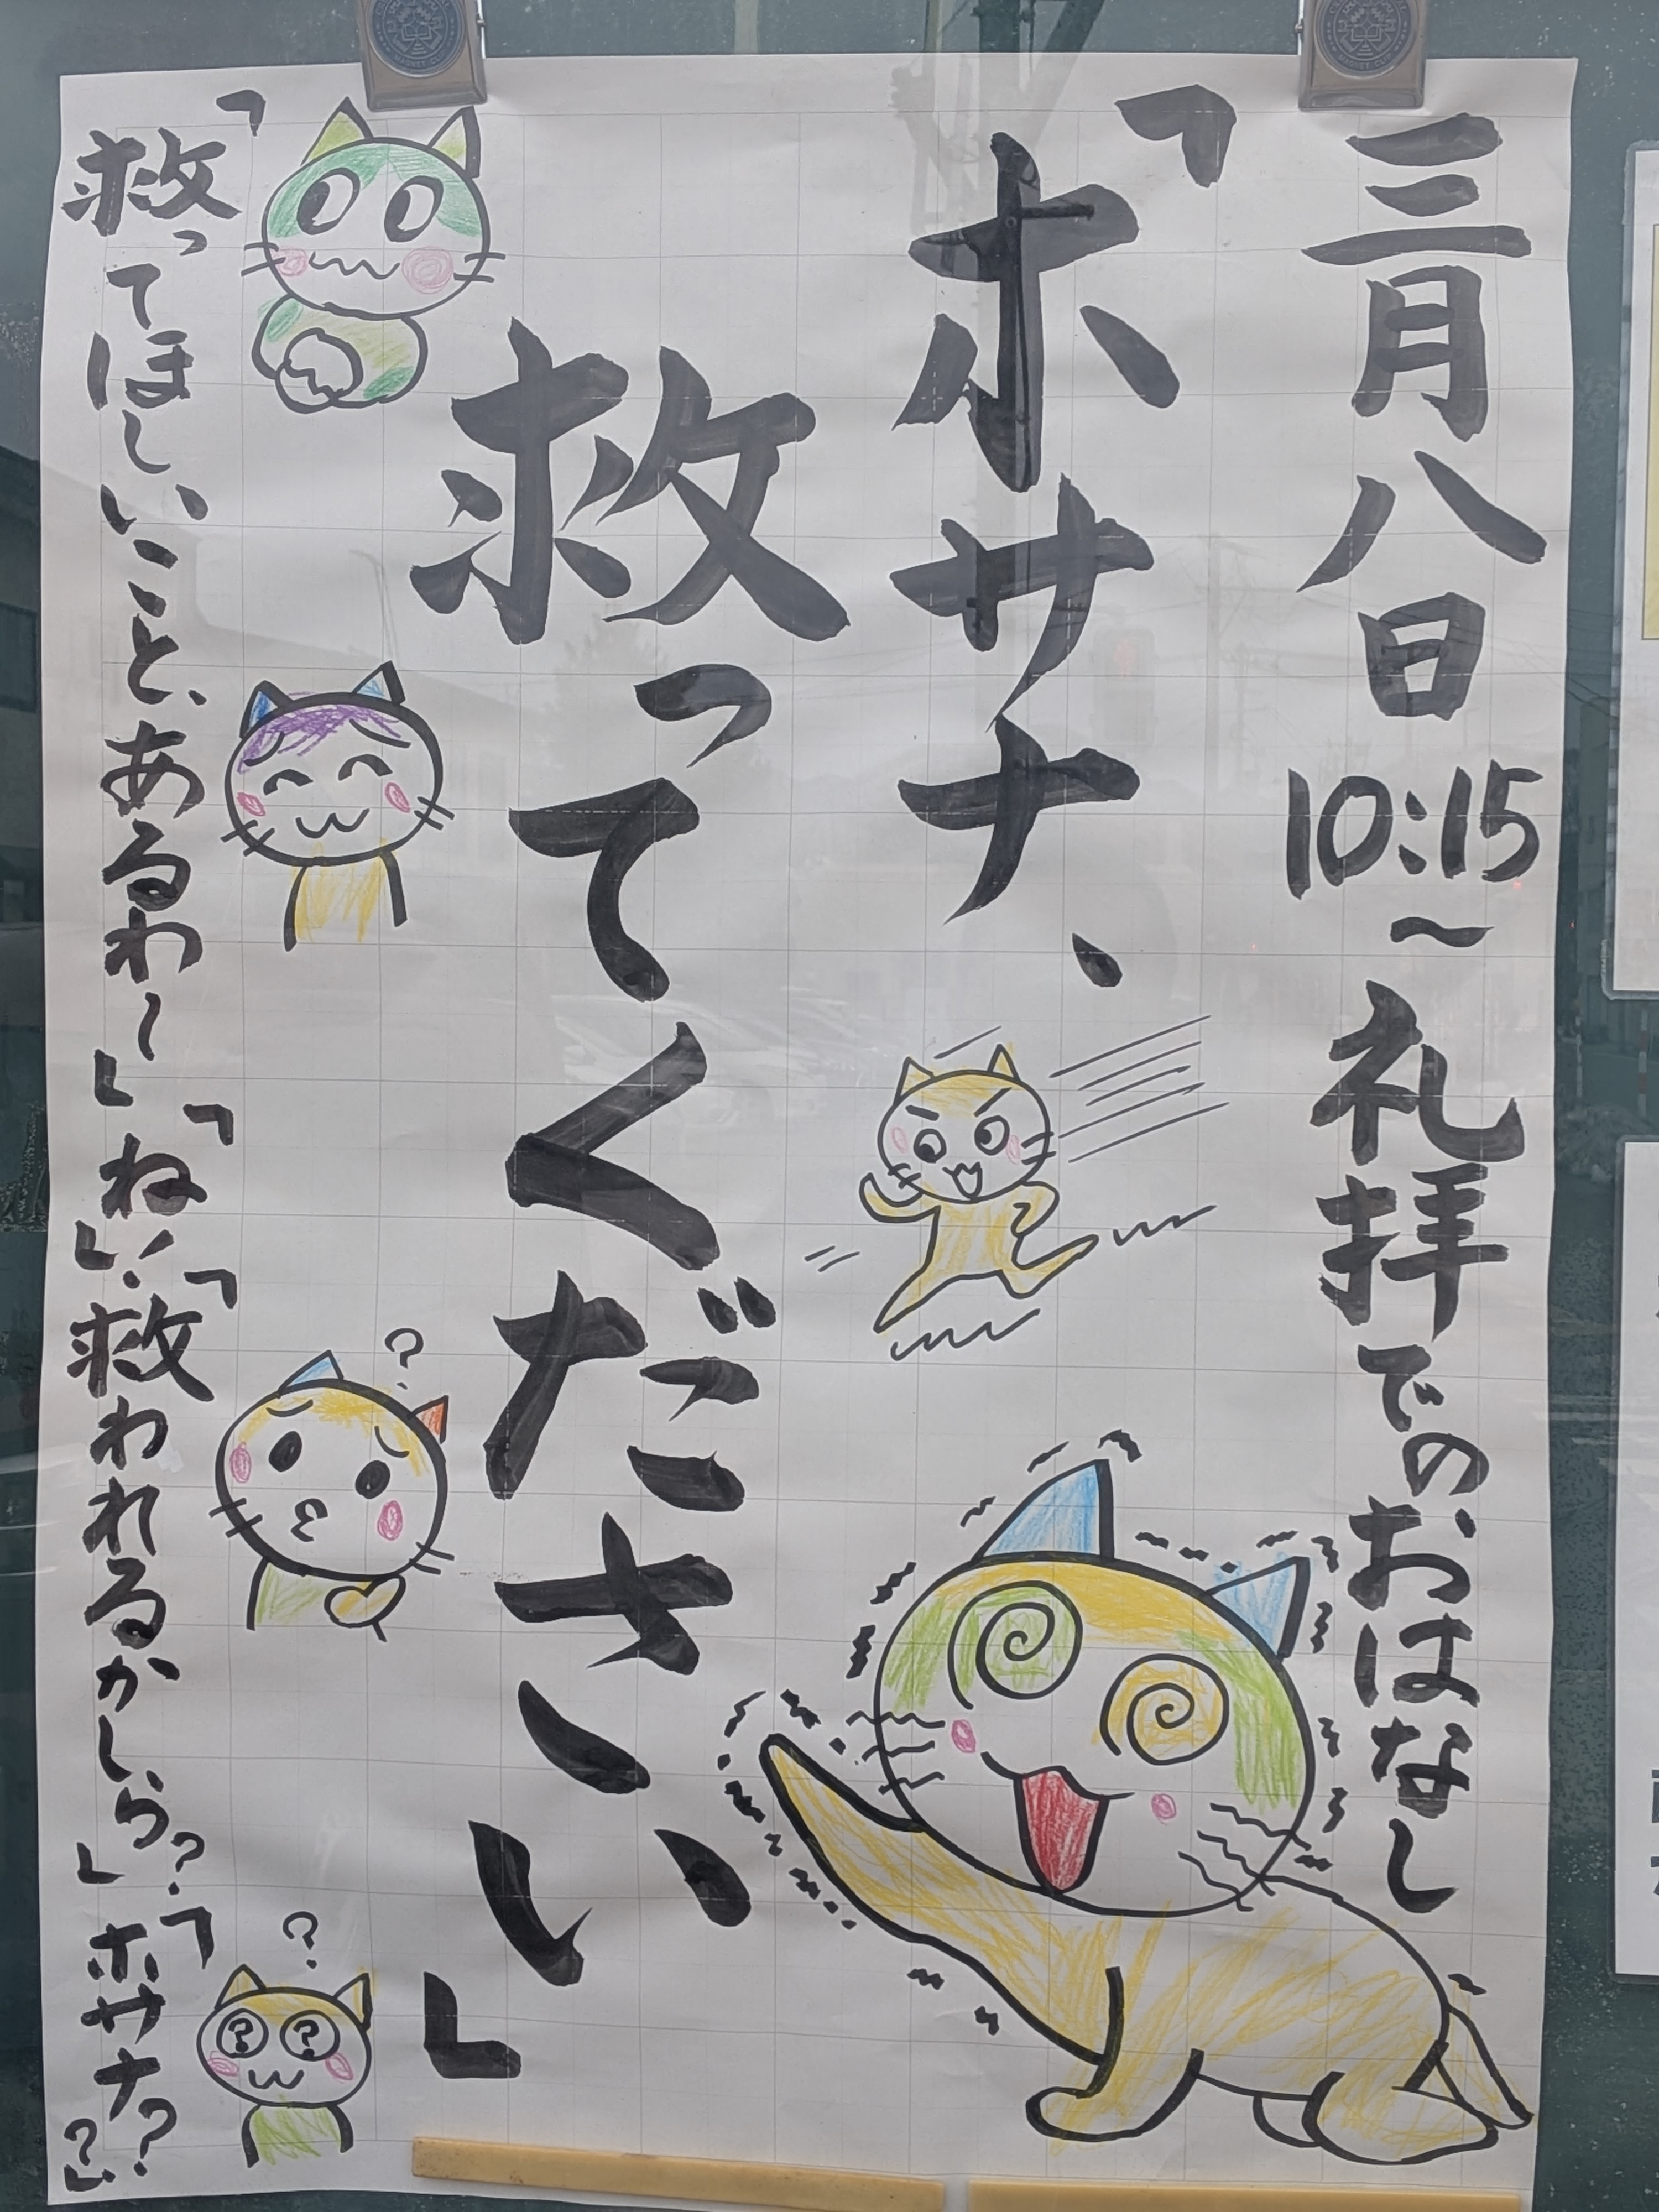 三月八日10:15〜礼拝でのおはなし
「ホサナ、
救ってください」
「救ってほしいこと、あるわ〜」「ね!」「救われるかしら?」「ホサナ??」
?
?
? ?
MAGNET CLIP
MAGNET CLIP